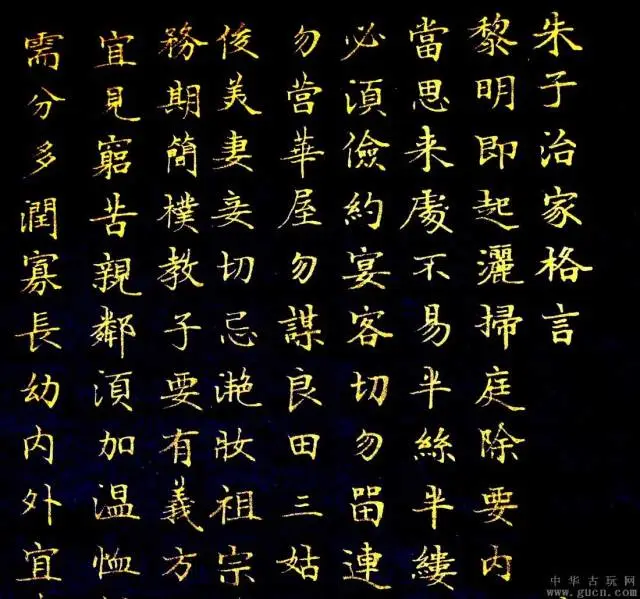 朱子治家格言
黎明即起灑掃庭除要内
當思来處不易半絲半縷
必湏儉約宴客切勿留連
勿营華屋勿謀良田三姑
俊美妻妾切忌滟妝祖宗
務期簡樸教子要有義方
宜見窮苦親鄰湏加温恤
需分多潤寡長幼内外宜
中华古玩网
www.gucn.com